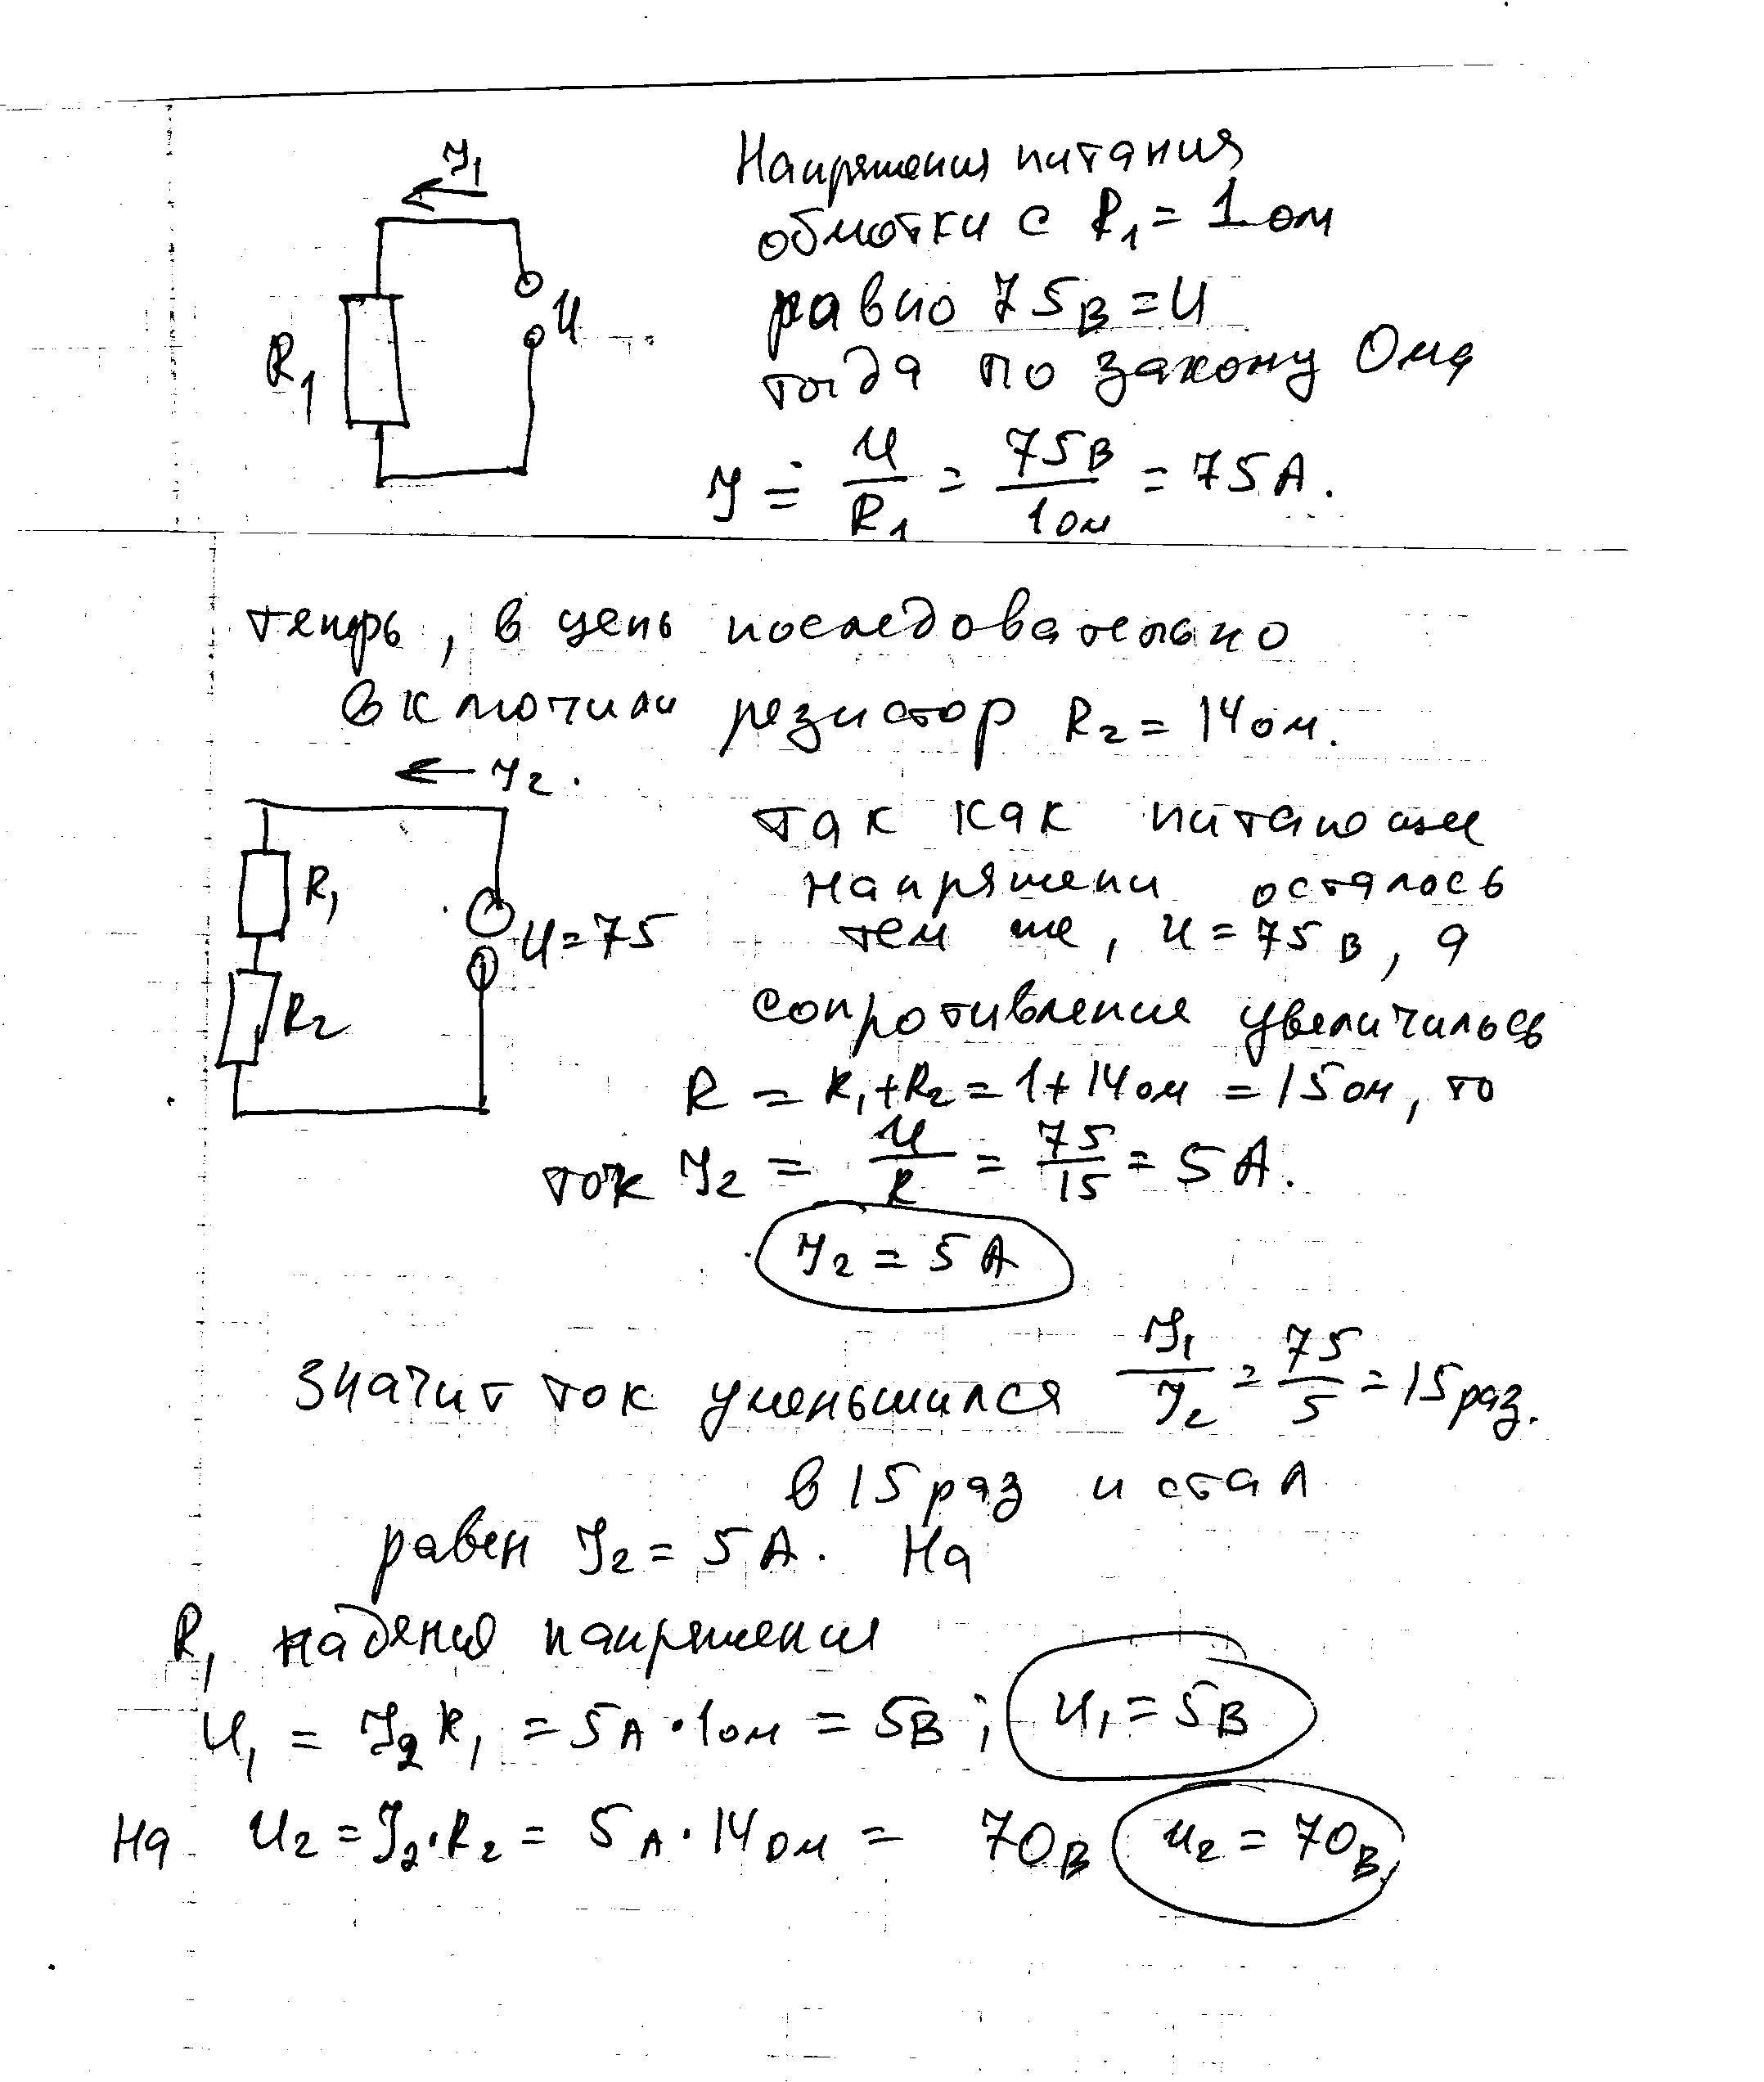 I₁
R₁
U
Напряжения питания
обмотки с R₁ = 1 ом
равно 75 В = U
тогда по закону Ома
I = U/R₁ = 75В/1ом = 75 А.
теперь, в цепь последовательно
включили резистор R₂ = 14 ом.
← I₂.
R₁
R₂
U = 75
так как питающее
напряжени осталось
тем же, U = 75 В, а
сопротивления увеличилось
R = R₁ + R₂ = 1 + 14 ом = 15 ом, то
ток I₂ = U/R = 75/15 = 5 А.
I₂ = 5 А
Значит ток уменьшился I₁/I₂ = 75/5 = 15 раз.
в 15 раз и стал
равен I₂ = 5 А. На
R₁ падения напряжения
U₁ = I₂ R₁ = 5 А · 1 ом = 5 В; U₁ = 5 В
на U₂ = I₂ · R₂ = 5 А · 14 ом = 70 В U₂ = 70 В,